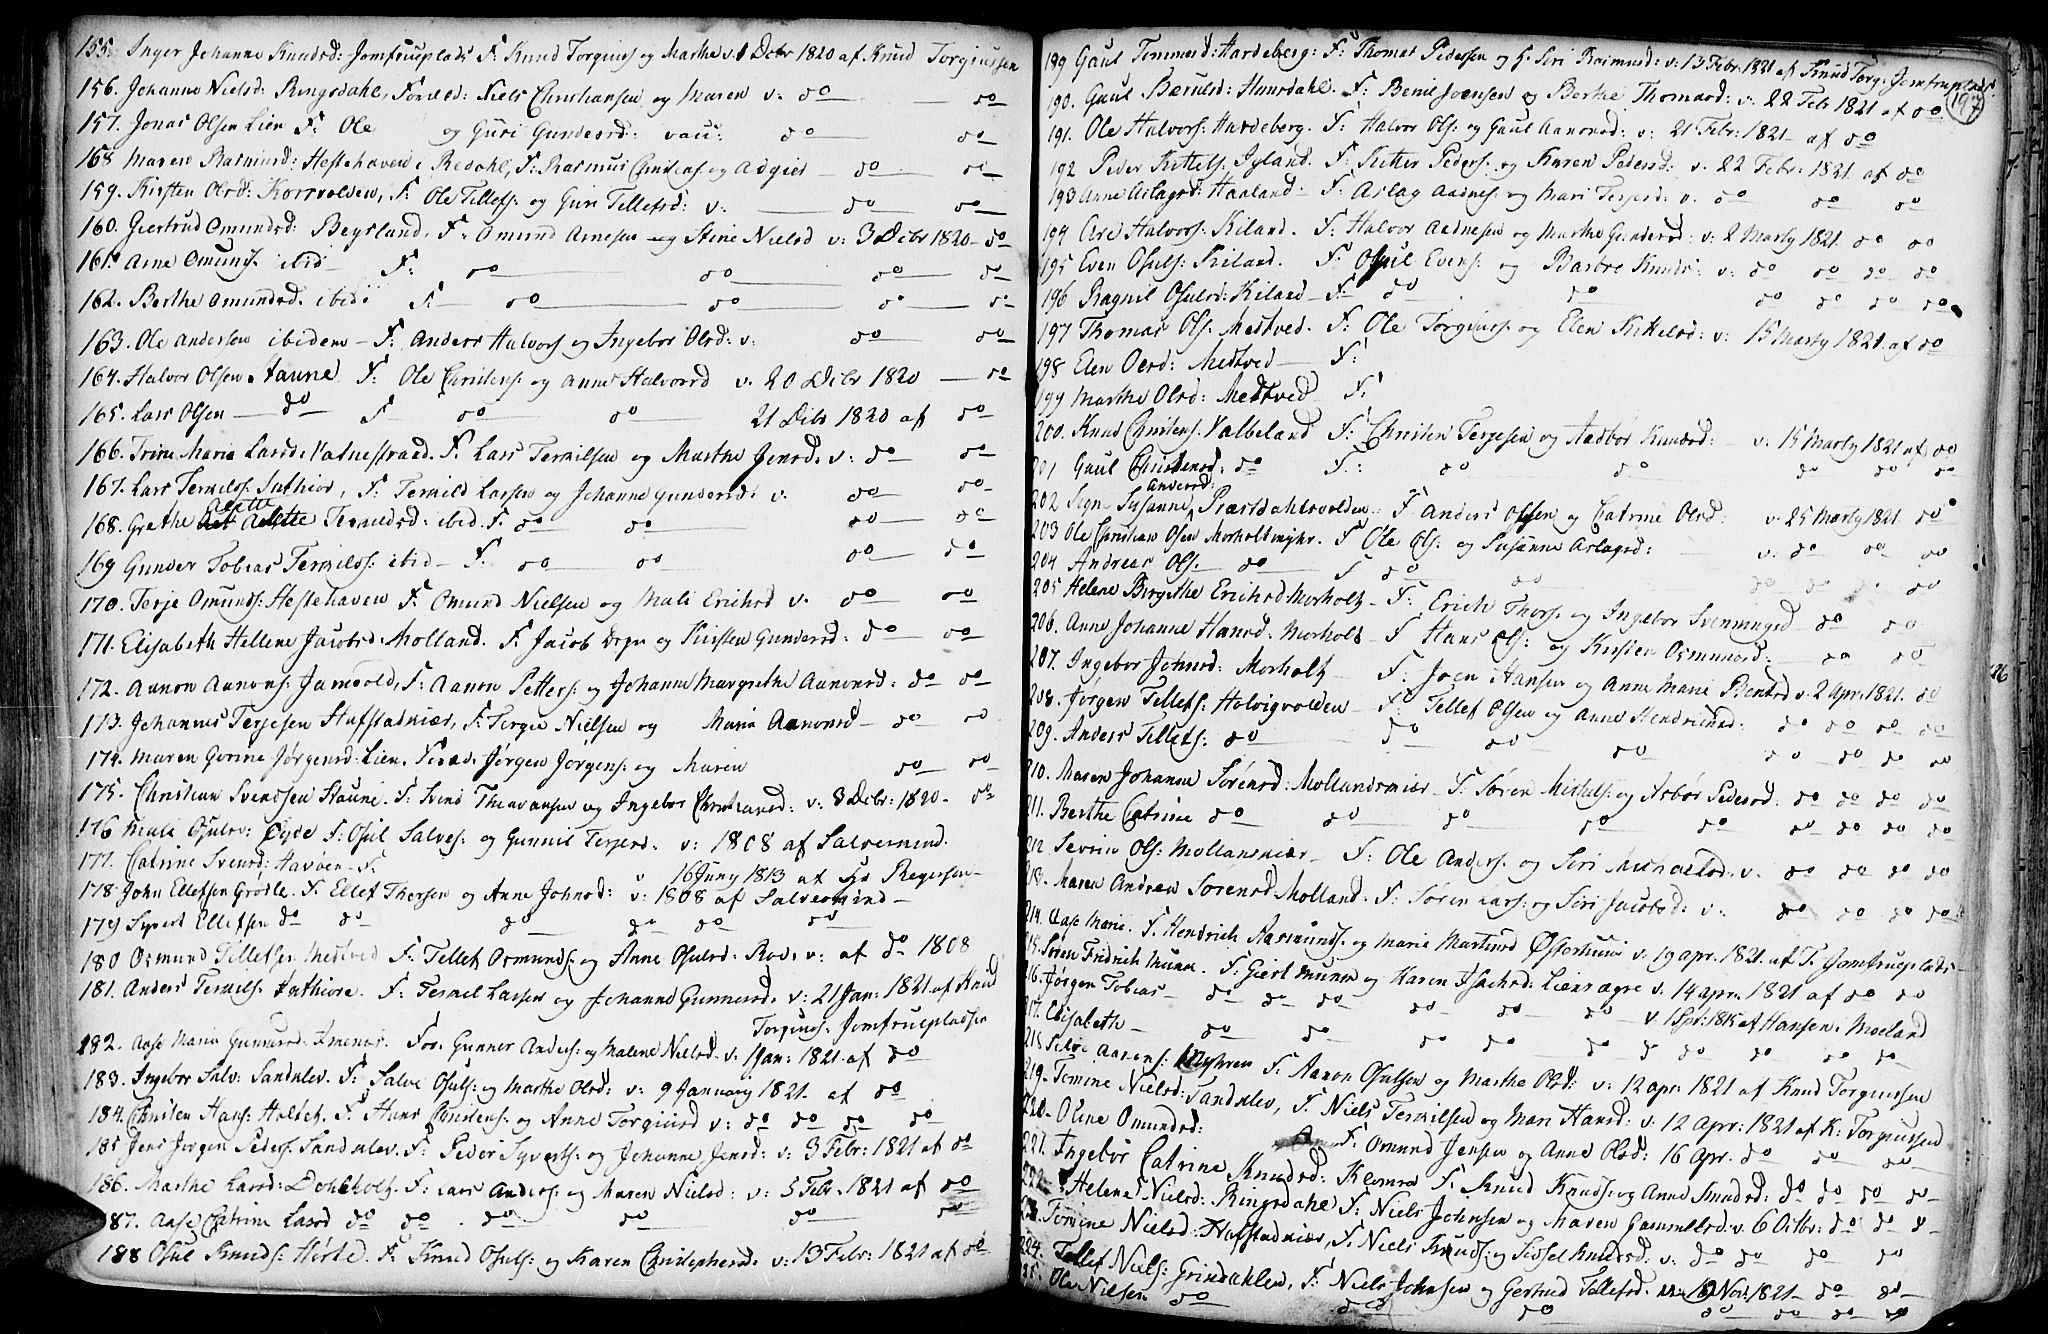 155. Inger Johanne Knudsd: Jomfrueplads F: Knud Torgiuss og Marthe v: 1 Debr 1820 af Knud Torgiussen
156. Johanne Nielsd: Ringsdahl, Foræld: Niels Christiansen og Maren v: do — do
157. Jonas Olsen Lien F: Ole og Guri Gundersd: do do
168 Maren Rasmusd: Hestehaven i Redahl, F: Rasmus og — do — do
159. Kirsten Olsd: F: Ole Tellefs: og Guri Tellefsd: v: — do — do
160. Giertrud Omundsd: Beysland. F: Omund Arnesen og Stine Nielsd v: 3 Debr 1820 — do
161. Arne Omunds. ibid — F: do — do — do — do
162. Berthe Omundsd. ibid: F. — do — do — do — do
163. Ole Andersen ibidem — F: Anders Halvors og Ingebor Olsd: v: do — do
164. Halvor Olsen Staune. F: Ole Christens: og Anne Halvorsd v. 20 Debr 1820 — do
165. Lars Olsen — do — F do do 21 Debr 1820 af do
166. Trine Maria Larsd: F. Lars Terkilsen og Marthe Jensd: v: do — do
167. Lars Terkilss: F: Terkild Larsen og Johanne Gundersd: v. do — do
168. Grethe Alette Terkildsd: ibid. F. do do do — do
169 Gunder Tobias Terkilds: ibid — F: do do do — do
170. Terje Omunds: Hestehaven F. Omund Nielsen og Mali Erichsd v. do — do
171. Elisabeth Hellene Jacobsd: Molland. F: Jacob og Kirsten Gundersd: do — do
172. Aanon Aanons: F: Aanon Petters: og Johanne Margrethe Aanonsd: do — do
173. Johannes Terjesen Hafstadniær, F: Terger Nielsen og Maria Aanonsd — do — do
174. Maren Gorine Jørgensd: Lien. Foræd: Jørgen Jørgens: og Maren do — do
175. Christian Svendsen Staune. F: Svend og Ingebor Christiansd: v: 8 Debr: 1820. do
176 Mali Osulsd: Øyde F: Osul Salves: og Gunnil Terjesd. v: 1808 af Salvesmind.
177. Catrine Svensd: F: v 16 Juny 1813 af Regersen —
178. John Ellefsen Grødle. F. Ellef Thorsen og Anne Johnsd: v: 1808 af Salvesmind —
179 Syvert Ellefsen do do do do do do
180 Osmund Tellefsen Mestved F: Tellef Osmunds: og Anne Osulsd: v: af do 1808
181. Anders Terkils. F: Terkel Larsen og Johanne Gunnersd. v: 21 Jan: 1821 af Knud
Torgiuss. Jomfruepladsen
182. Aase Maria Gunnersd: For. Gunner Anders: og Malene Nielsd. v: 1 Jan: 1821. af do
183. Ingebor Salv: Sandklev. F: Salve Osuls: og Marthe Olsd: v: 9 January 1821. af do
184. Christen Hans: Holtet. F. Hans Christens. og Anne Torgiusd v: do do do do
185 Jens Jørgen Peders. Sandklev. F: Peder Syverts: og Johanne Jensd: v: 3 Febr: 1821 af do
186. Marthe Larsd: Dohlholt. F: Lars Anders: og Maren Nielsd: v: 5 Febr. 1821 af do
187. Aase Catrine Larsd do do do do do do
188 Osul Knuds: F: Knud Osuls: og Karen Christophersd: v: 13 Febr: 1821 af do
197
189 Gaul Tommesd: Hardeberg: F: Thomes Pedersen og Siri Rasmusd: v: 13 Febr: 1821 af Knud Torg: Jomfruplads
190. Gaul F: og Berthe Thomasd: v. 22 Feb 1821 af do
191. Ole Halvors: Hardeberg. F: Halvor Ols: og Gaul Aanonsd: v: 21 Febr: 1821 — af do
192 Peder Kittels. Igland. F: Kittel Peders: og Karen Pedersd: v. 22 Febr: 1821. af do
193 Anne Aslagsd: Haaland. F: Aslag Aadnes: og Mari Terjesd: v. do do do
194 Halvors: Kiland. F: Halvor Aadnesen og Marthe Gundersd: v: 2 Marty 1821. do do
195 Even Osuls: Kiland. F: Osul Evens: og Barbro Knuds: v: do do do do
196 Ragnil Osulsd: Kiland — F: do do do do do do
197 Thomas Ols: Mestved. F: Ole Torgiuss: og Elen Kittelsd: v: 15 Marty 1821. af do
198 Elen Olsd: Mestved — F:
199 Marthe Olsd: Mestved — F:
200. Knud Christens: Valbeland F: Christen Terjesen og Aadbor Knudsd: — v. 15 Marty 1821 af do
201 Gaul Christensd: do F: do do do do do
202 Susanne Andersd: Præstdahlsvolden F: Anders Olsen og Catrine Olsd: v. 25 Marty 1821. do
203 Ole Christian Olsen F Ole Ols: og Susanne Aslagsd: v. do do do
204 Andreas Ols. — do F do do do do do
205 Helene Birgithe Erichsd: Morholt — F: Erich Thors: og Ingebor Svenningsd — do do
206. Anne Johanne Hansd: Morholt — F Hans Ols: og Kirsten Osmundsd: — do do
207. Ingebor Johnsd: Morholt — F: Joen Hansen og Anne Marie Bendsd v. 2 Apr: 1821. do
208. Jørgen Tellefs: Holvigvolden — F: Tellef Olsen og Anne Hendrichsd: do do do do
209. Anders Tellefs: do — do do do do do do do
210. Maren Johanne Sørensd: Mollandsniær — F: Søren Michels: og Asbor Pedersd: do do do do
211. Berthe Catrine do do do do do do do do do
212. Sevrin Ols: Mollansniær — F: Ole Anders: og Siri Michaelsd: v. do do do do
213. Maren Andrea Sorensd: Molland. F: Søren Lars: og Siri Jacobsd: v: do do do do
214. Aase Marie. F. Hendrich Rasmunds: og Maria Martinsd v. 19 apr. 1821. af T. Jomfrueplads —
215. Søren Fridrich Munk. F: Giert Munk og Karen Isachsd: v. 14 apr: 1821 af do do
216. Jørgen Tobias — do do do do do do v. 1 Spt: 1815 af Hansen. Moeland
217. Elisabeth — do do do do do do do do do
218 Selvi Aanons: F: Aanon Osulsen og Marthe Olsd: v: 12 apr: 1821 af Knud Torgiussen
219. Tomine Nielsd: Sandklev, F. Niels Terkilsen og Mari Hansd: v. 12 Apr: 1821 af K: Torgiussen
220. Oline Omundsd: F: Omund Jensen og Anne Olsd: 16 Apr. do do do
221. Ingebor Catrine Knudsd: F: Knud Knuds: og Anne Knudsd: do do do do
222. Helene Nielsd: Ringsdahl F: Niels Johnsen og Maren Gammelsd: v. 6 Octbr: do do
Tomine Nielsd: Hafstadniær, F: Niels Knuds: og Sidsel Knudsd: v: do do do do
224. Tellef Niels: Grindahlen, F: Niels Johnsen og Gertrud Tellefsd. 10 Novb: 1821 — do do
Ole Nielsen do do do do do do